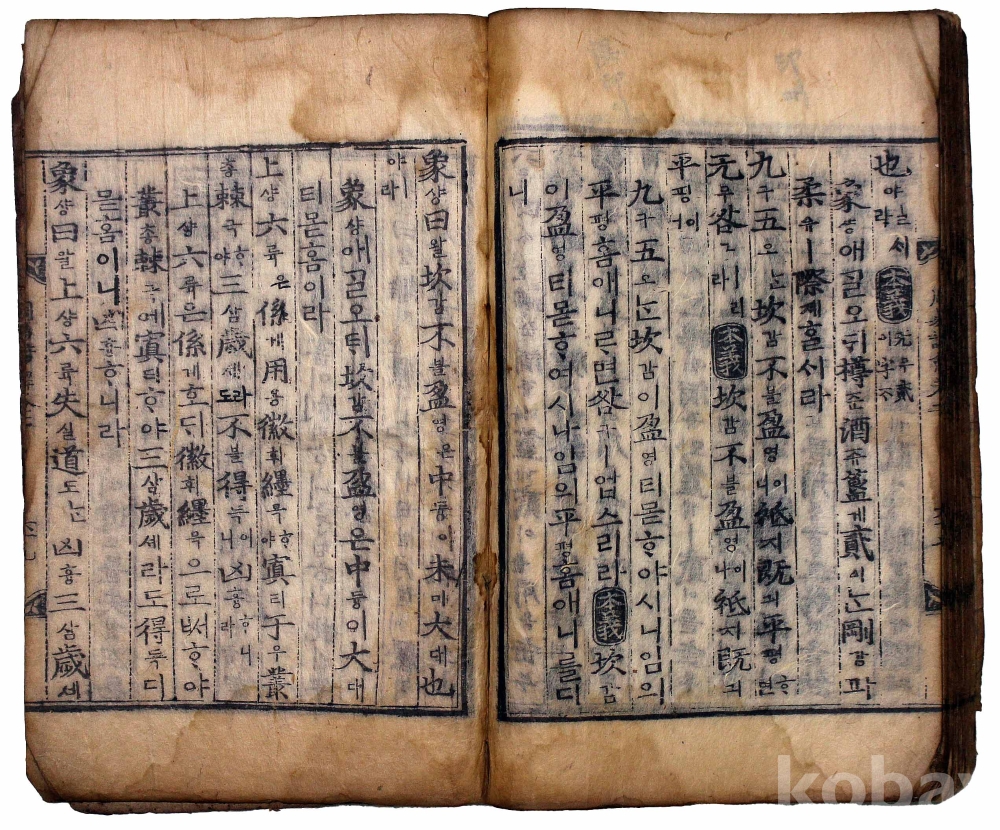 也야라
本義
象샹애ᄀᆞᆯ오ᄃᆡ樽준酒쥬簋궤貳이ᄂᆞᆫ剛강과
柔유ㅣ際졔ᄒᆞᆯ서라
九구五오ᄂᆞᆫ坎감不블盈영이니祗지旣긔平평ᄒᆞ면
无무咎구ㅣ리라本義坎감不블盈영이나祗지旣긔
平평이니
九구五오ᄂᆞᆫ坎감이盈영티몯ᄒᆞ야시니임의
平평홈애니르면咎구ㅣ업스리라本義坎감
이盈영티몯ᄒᆞ여시나임의平평홈애니를디
니
象샹曰왈坎감不블盈영은中듕이未미大대也
야라
象샹애ᄀᆞᆯ오ᄃᆡ坎감不블盈영은中듕이大대
티몯홈이라
上샹六륙은係계用용徽휘纆믁ᄒᆞ야寘티于우叢
총棘극ᄒᆞ야三삼歲셰라도不블得득이니凶흉ᄒᆞ니라
上샹六륙은係계호ᄃᆡ徽휘纆믁으로ᄡᅥᄒᆞ야
叢총棘극에寘티ᄒᆞ야三삼歲셰라도得득디
몯홈이니凶흉ᄒᆞ니라
象샹曰왈上샹六륙失실道도ᄂᆞᆫ凶흉三삼歲셰
kobay